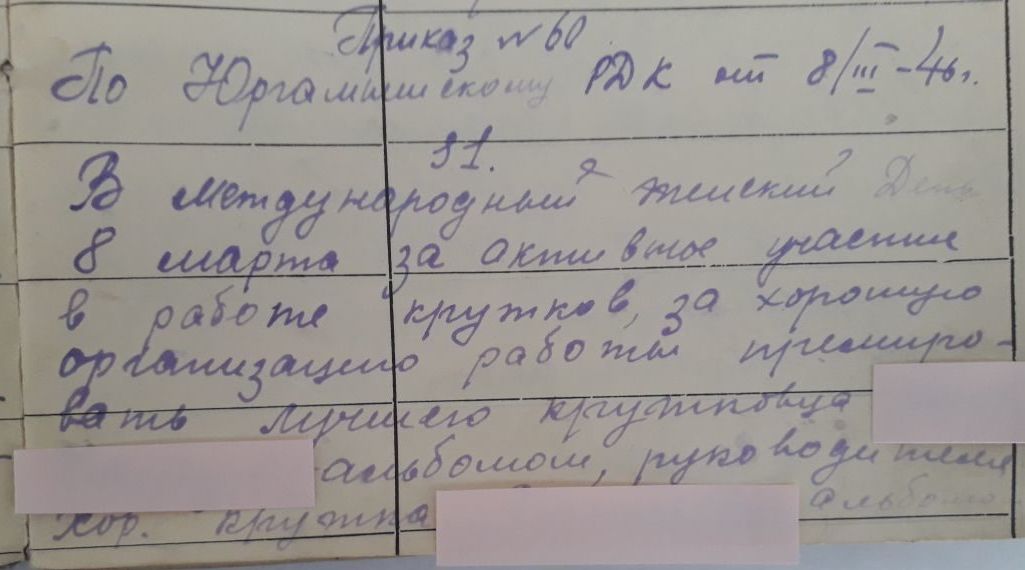 Приказ №60
По Юргамышскому РДК от 8/III-46г.
§1.
В международный женский День
8 марта за активное участие
в работе кружков, за хорошую
организацию работы премиро-
вать лучшего кружковца
альбомом, руководителя
хор. кружка альбомо